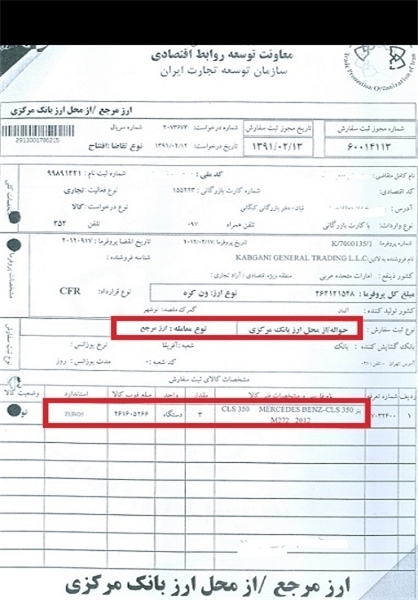 معاونت توسعه روابط اقتصادی
سازمان توسعه تجارت ایران
Trade Promotion Organization of Iran
ارز مرجع /از محل ارز بانک مرکزی
2913001786215
شماره مجوز ثبت سفارش
تاریخ مجوز ثبت سفارش
شماره درخواست: ۲۰۷۳۶۷۳
شماره سریال
۶۰۰۱۴۱۱۳
۱۳۹۱/۰۲/۱۳
تاریخ درخواست: ۱۳۹۱/۰۲/۱۲
نوع تقاضا:افتتاح
نام کامل متقاضی
کد ملی :
شماره ثبت نام : ۹۹۸۹۱۲۲۱
کد اقتصادی:
شماره کارت بازرگانی: ۱۵۵۲۲۳
نوع فعالیت تجاری
آدرس :
بازرگانی کبگانی
نوع درخواست: کالا
نوع واردات: با کارت بازرگانی
تلفن همراه ۰۹۷
تلفن ۳۵۲
شماره پروفرما K/7000135/1
۲۰۱۲/۰۲/۱۷
تاریخ انقضا پروفرما: ۲۰۱۲۰۹۱۷
فروشنده به لاتین: KABGANI GENERAL TRADING L.L.C
شناسه فروشنده :
کشور ذینفع : امارات متحده عربی
منطقه ویژه اقتصادی / آزاد تجاری :
مبلغ کل پروفرما: ۲۶۲۱۲۱۵۲۸
نوع ارز: ون کره
نوع قرارداد: CFR
کشور تولید کننده : المان
گمرک مقصد: نوشهر
مشخصات پروفرما
نوع ثبت سفارش :
حواله/از محل ارز بانک مرکزی
نوع معامله : ارز مرجع
بانک گشایش کننده : بانک
شعبه: آفریقا
نوع یوزانس:
مدت یوزانس : روز
مشخصات کالای ثبت سفارش
ردیف
شماره تعرفه
نام فارسی و مشخصات فنی کالا
مقدار
واحد
مبلغ فوب کالا
استاندارد
وضعیت کالا
۱
بنز CLS 350 MERCEDES BENZ-CLS 350
M272 2012
۳
دستگاه
۲۶۱۶۰۵۲۶۶
EURO5
نو
ارز مرجع /از محل ارز بانک مرکزی